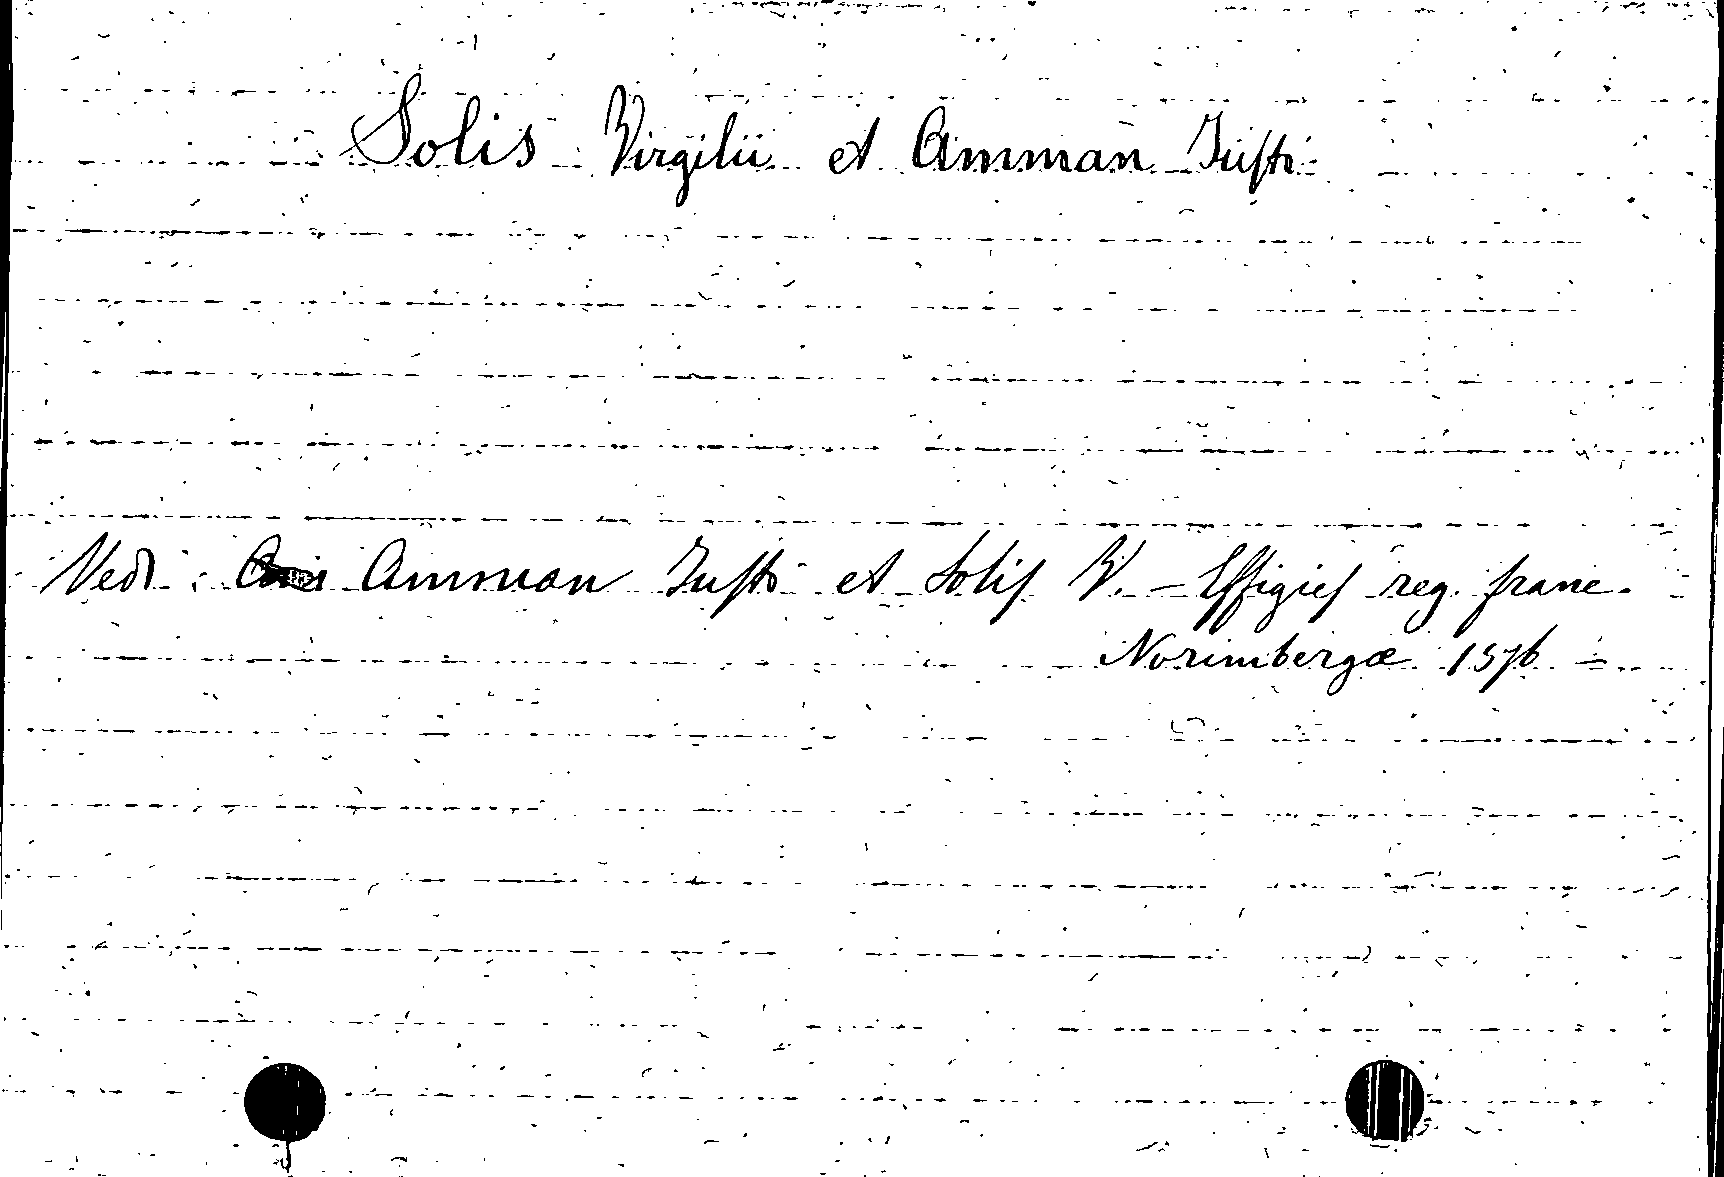 Solis Virgilii et Amman Justi
Vedi: Amman Justi et Solis V. – Effigies reg. franc.
Norimbergæ 1576